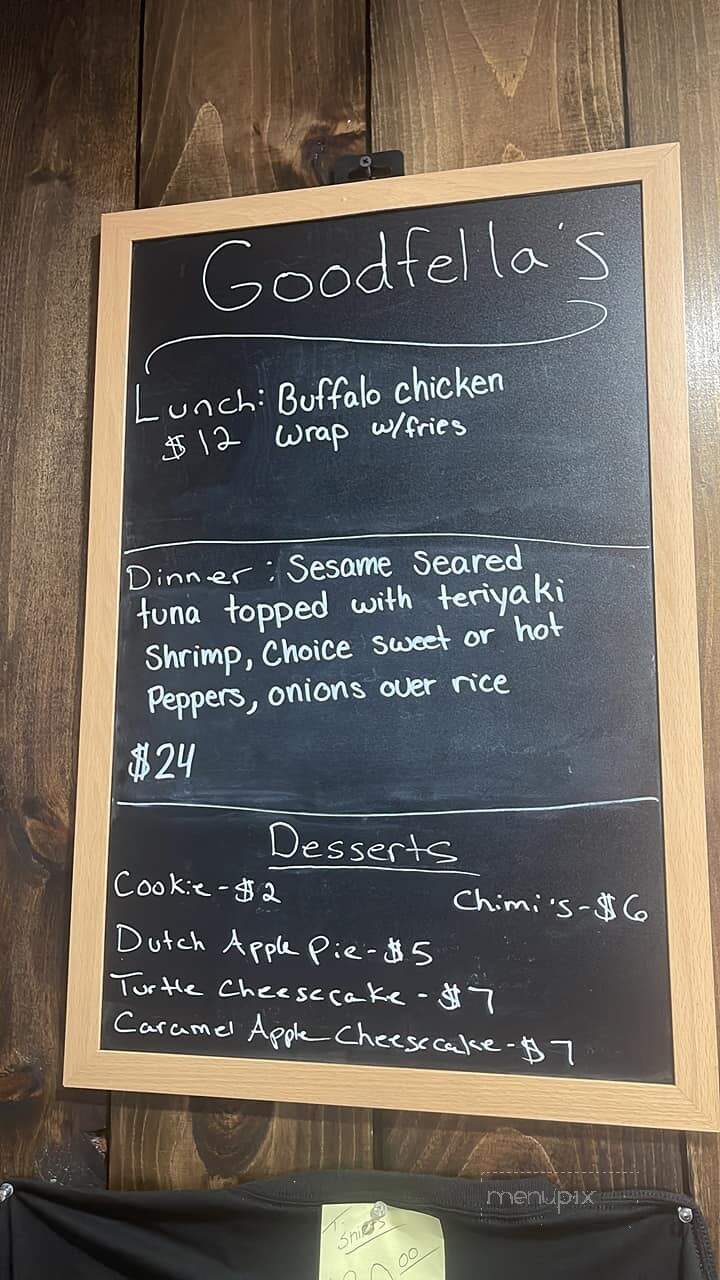 Goodfella's
Lunch: Buffalo chicken
$12 wrap w/fries
Dinner: Sesame seared
tuna topped with teriyaki
Shrimp, Choice sweet or hot
Peppers, onions over rice
$24
Desserts
Cookie-$2
Chimi's-$6
Dutch Apple Pie-$5
Turtle Cheesecake-$7
Caramel Apple Cheesecake-$7
menupix
T-Shirts